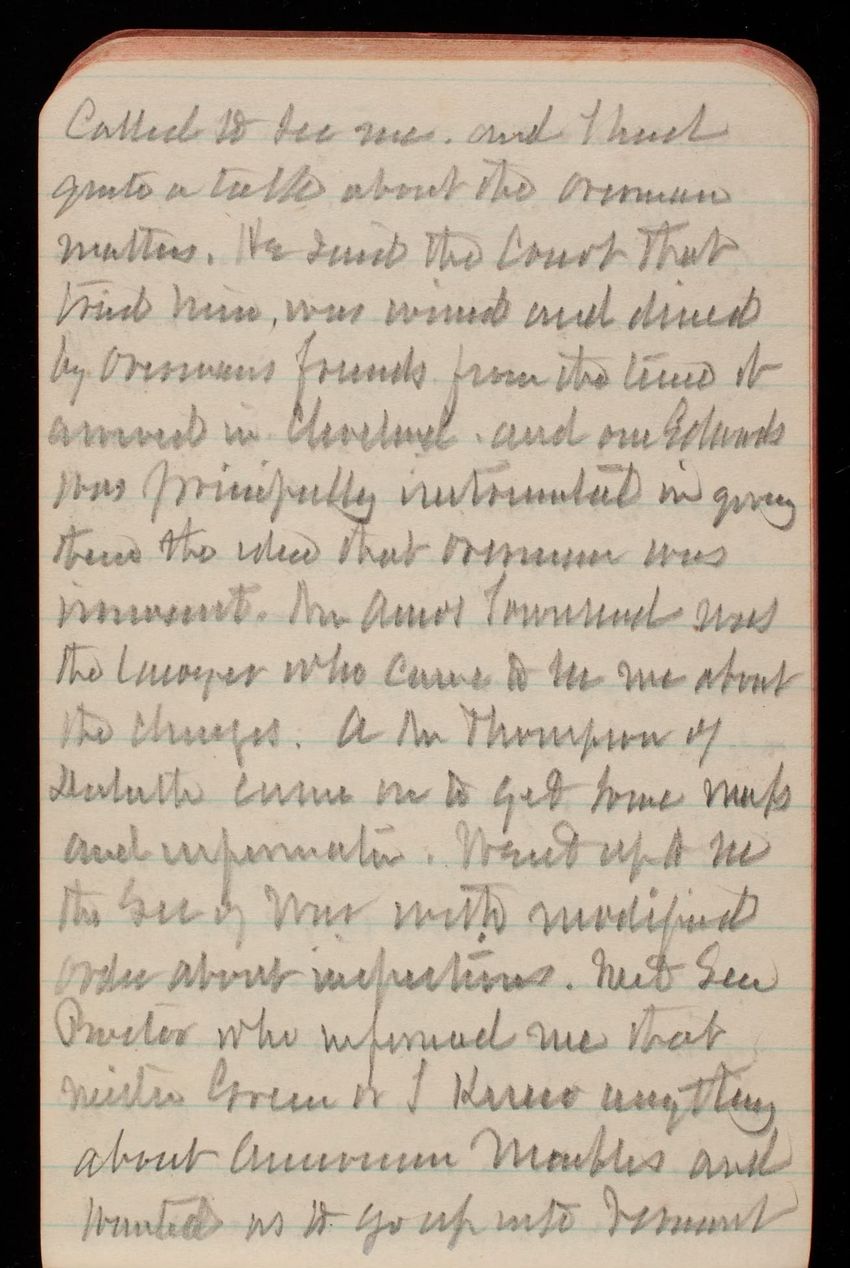 Called to see me. and I had
quite a talk about the Overman
matters. He said the Court that
tried him, was wined and dined
by Overmans friends from the time it
arrived in Cleveland. and one Edwards
was principally instrumental in giving
them the idea that Overman was
innocent. Mr Amos Townsend was
the lawyer who came to see me about
the charges. A Mr Thompson of
Duluth came in to get some maps
and information. Went up to see
the Sec of War with modified
order about inspections. Met Sen
Proctor who informed me that
neither Green or I knew anything
about American Marbles and
wanted us to go up into Vermont